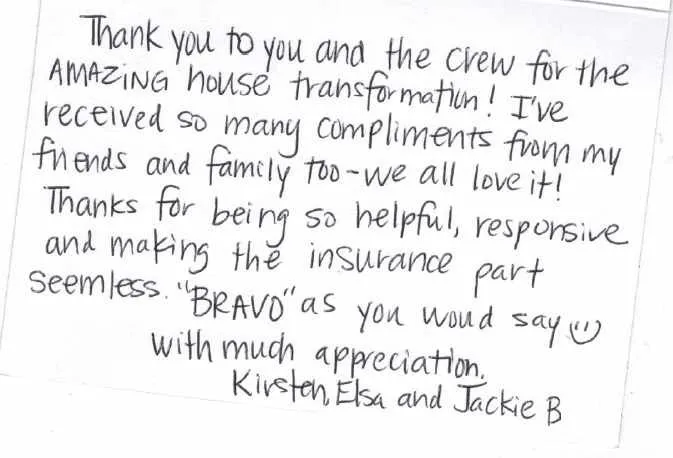 Thank you to you and the crew for the
AMAZING house transformation! I've
received so many compliments from my
friends and family too-we all love it!
Thanks for being so helpful, responsive
and making the insurance part
seemless. "BRAVO" as you woud say
with much appreciation,
Kirsten, Elsa and Jackie B